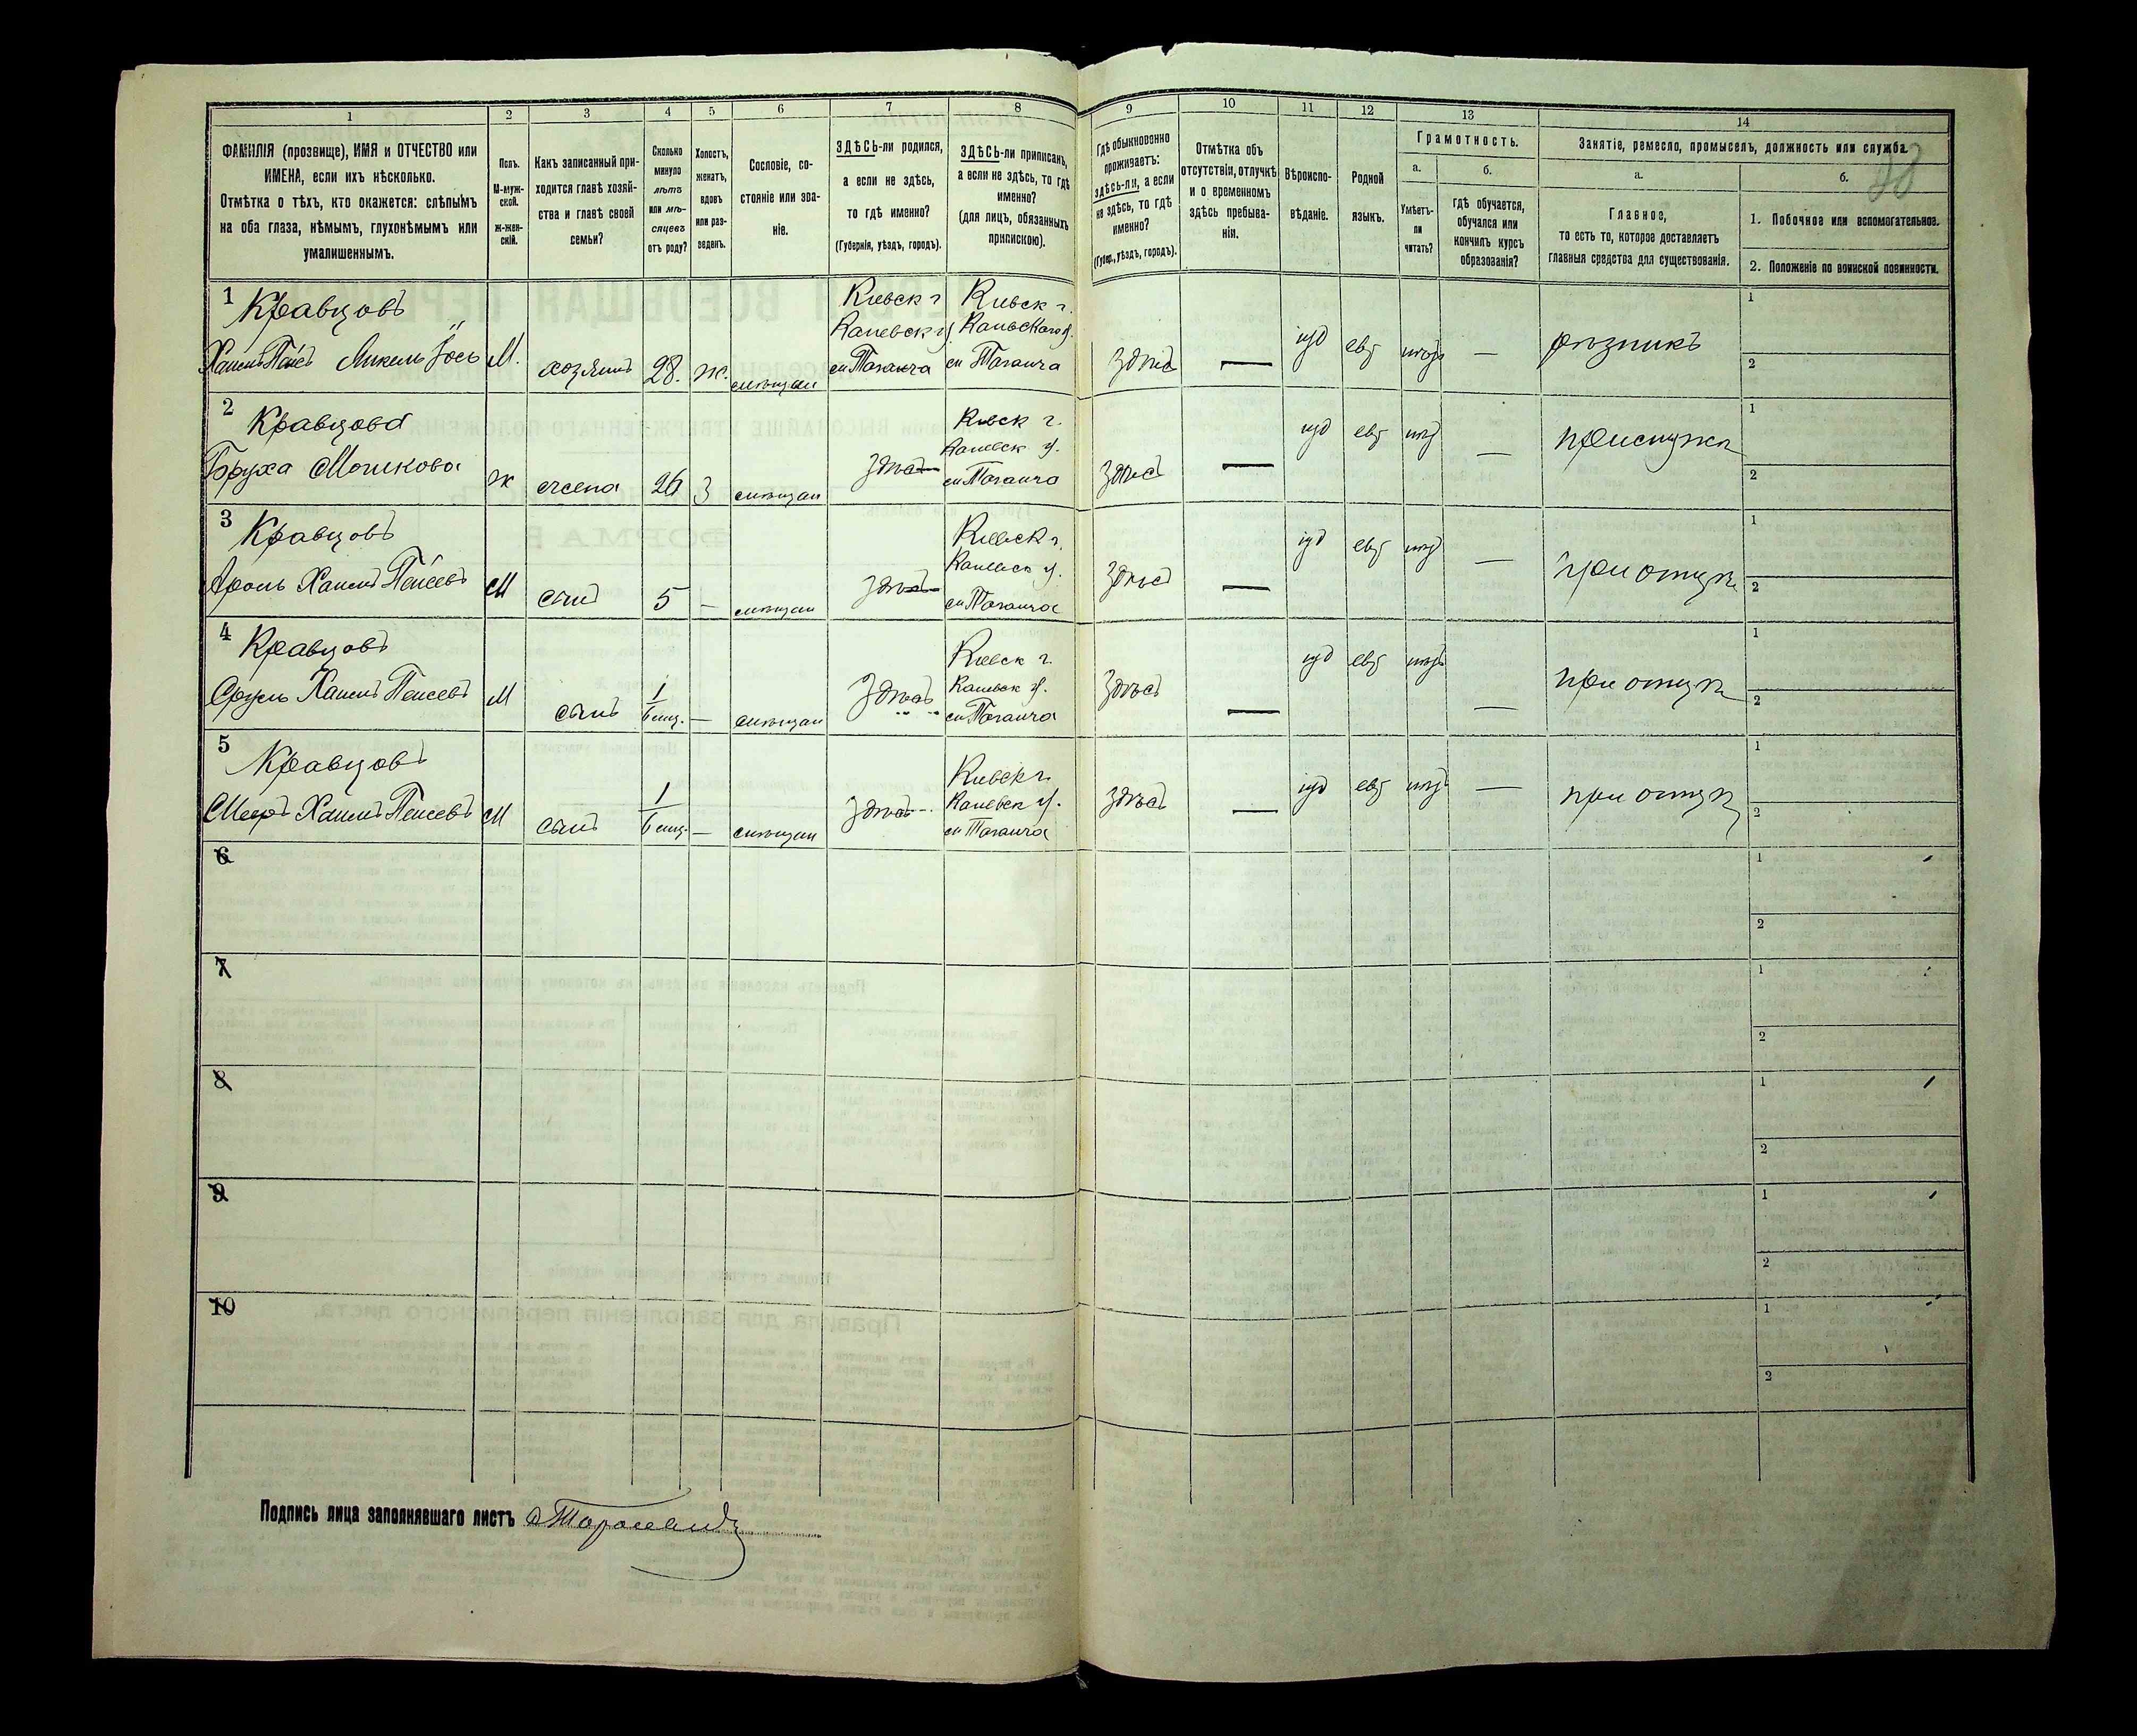 1
2
3
4
5
6
7
8
9
10
11
12
13
14
ФАМИЛІЯ (прозвище), ИМЯ и ОТЧЕСТВО или
ИМЕНА, если ихъ нѣсколько.
Отмѣтка о тѣхъ, кто окажется: слѣпымъ
на оба глаза, нѣмымъ, глухонѣмымъ или
умалишеннымъ.
Полъ.
М-муж-
ской.
Ж-жен-
скій.
Какъ записанный при-
ходится главѣ хозяй-
ства и главѣ своей
семьи?
Сколько
минуло
лѣтъ
или мѣ-
сяцевъ
отъ роду?
Холостъ,
женатъ,
вдовъ
или раз-
веденъ.
Сословіе, со-
стояніе или зва-
ніе.
ЗДѢСЬ-ли родился,
а если не здѣсь,
то гдѣ именно?
(Губернія, уѣздъ, городъ).
ЗДѢСЬ-ли приписанъ,
а если не здѣсь, то гдѣ
именно?
(для лицъ, обязанныхъ
припискою).
Гдѣ обыкновенно
проживаетъ:
здѣсь-ли, а если
не здѣсь, то гдѣ
именно?
(Губер., уѣздъ, городъ).
Отмѣтка объ
отсутствіи, отлучкѣ
и о временномъ
здѣсь пребыва-
ніи.
Вѣроиспо-
вѣданіе.
Родной
языкъ.
Грамотность.
а.
Умѣетъ-
ли
читать?
б.
гдѣ обучается,
обучался или
кончилъ курсъ
образованія?
Занятіе, ремесло, промыселъ, должность или служба.
а.
Главное,
то есть то, которое доставляетъ
главныя средства для существованія.
б.
1. Побочное или вспомогательное.
2. Положеніе по воинской повинности.
1 Кравцовъ
М. хозяинъ 28. ж. мѣщан
Кіевск г
Каневск у
м Таганча
Кіевск г.
м Таганча
здѣсь — іуд евр — рѣзникъ
1
2
2 Кравцова
Бруха Мошкова
ж жена 26 З мѣщан здѣсь
Кіевск г.
Каневск у.
м Таганча
здѣсь — іуд евр —
1
2
3 Кравцовъ
М сынъ 5 — мѣщан здѣсь
Кіевск г.
Каневск у.
м Таганча
здѣсь — іуд евр — при отцѣ
1
2
4 Кравцовъ
Сруль Хаимъ Пейсевъ
М сынъ — мѣщан здѣсь
Кіевск г.
Каневск у.
м Таганча
здѣсь — іуд евр — при отцѣ
1
2
5 Кравцовъ
Хаимъ Пейсевъ
М сынъ — мѣщан здѣсь
Кіевск г.
Каневск у.
м Таганча
здѣсь — іуд евр — при отцѣ
1
2
6
1
2
7
1
2
8
1
2
9
1
2
10
1
2
Подпись лица заполнявшаго листъ